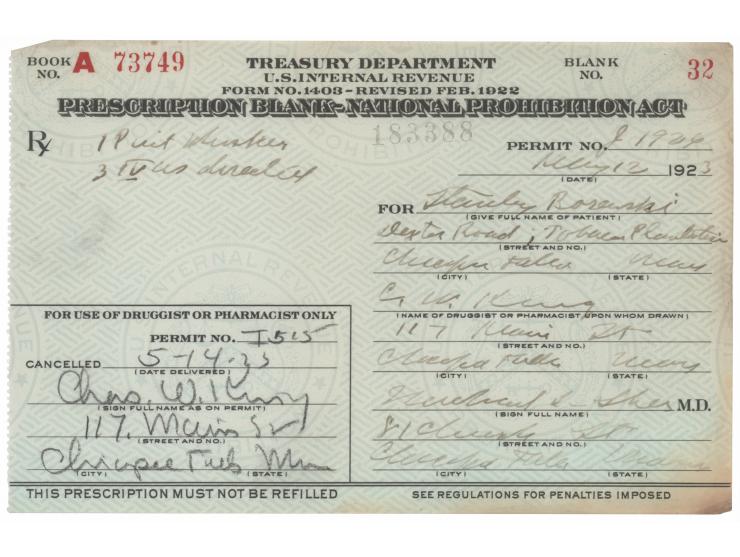 BOOK NO. A 73749
TREASURY DEPARTMENT
U.S. INTERNAL REVENUE
FORM NO. 1403-REVISED FEB. 1922
BLANK NO. 32
PRESCRIPTION BLANK-NATIONAL PROHIBITION ACT
183388
Rx 1 Pint
3 IV as directed
PERMIT NO.
May 12 1923
(DATE)
FOR Stanley
(GIVE FULL NAME OF PATIENT)
Road, Tobacco Plantation
(STREET AND NO.)
Falls Mass
(CITY) (STATE)
C. W. King
(NAME OF DRUGGIST OR PHARMACIST UPON WHOM DRAWN)
117 Main St
(STREET AND NO.)
Falls Mass
(CITY) (STATE)
Michael M.D.
(SIGN FULL NAME)
81 Church St
(STREET AND NO.)
(CITY) (STATE)
FOR USE OF DRUGGIST OR PHARMACIST ONLY
PERMIT NO. I 515
CANCELLED 5-14-23
(DATE DELIVERED)
Chas. W. King
(SIGN FULL NAME AS ON PERMIT)
117. Main St
(STREET AND NO.)
Chicopee Falls
(CITY) (STATE)
THIS PRESCRIPTION MUST NOT BE REFILLED
SEE REGULATIONS FOR PENALTIES IMPOSED